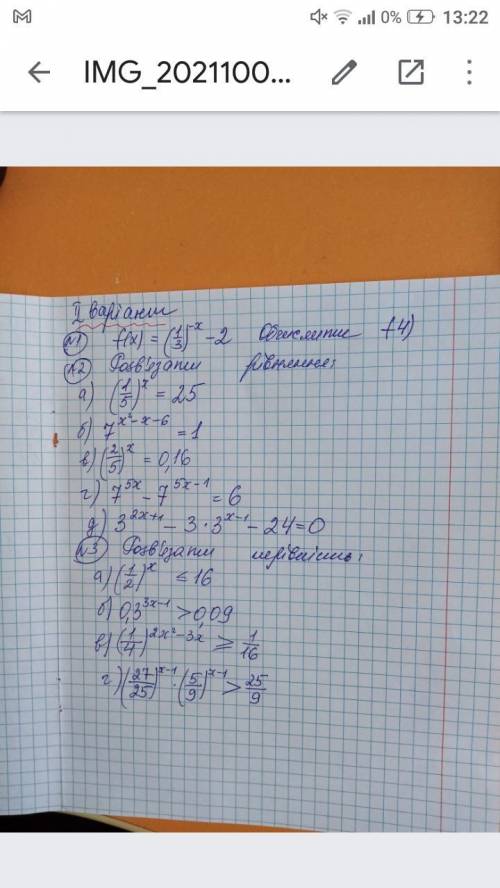 0% 13:22
IMG_2021100...
II варіант
№1 f(x) = (1/3)^-x - 2 Обчислити f(4)
№2 Розв'язати рівняння:
а) (1/5)^x = 25
б) 7^x²-x-6 = 1
в) (2/5)^x = 0,16
г) 7^5x - 7^5x-1 = 6
д) 3^2x+1 - 3·3^x-1 - 24=0
№3 Розв'язати нерівність:
а) (1/2)^x ≤ 16
б) 0,3^3x-1 > 0,09
в) (1/4)^2x²-3x ≥ 1/16
г) (27/25)^x-1 · (5/9)^x-1 > 25/9